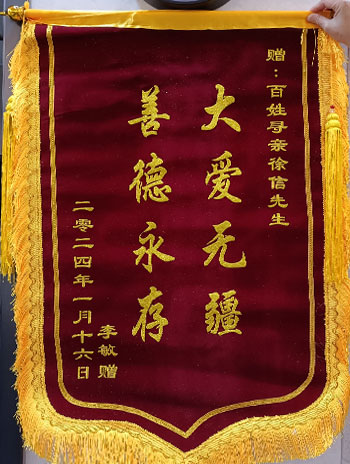 赠:百姓寻亲徐信先生
大爱无疆
善德永存
李敏赠
二零二四年一月十六日